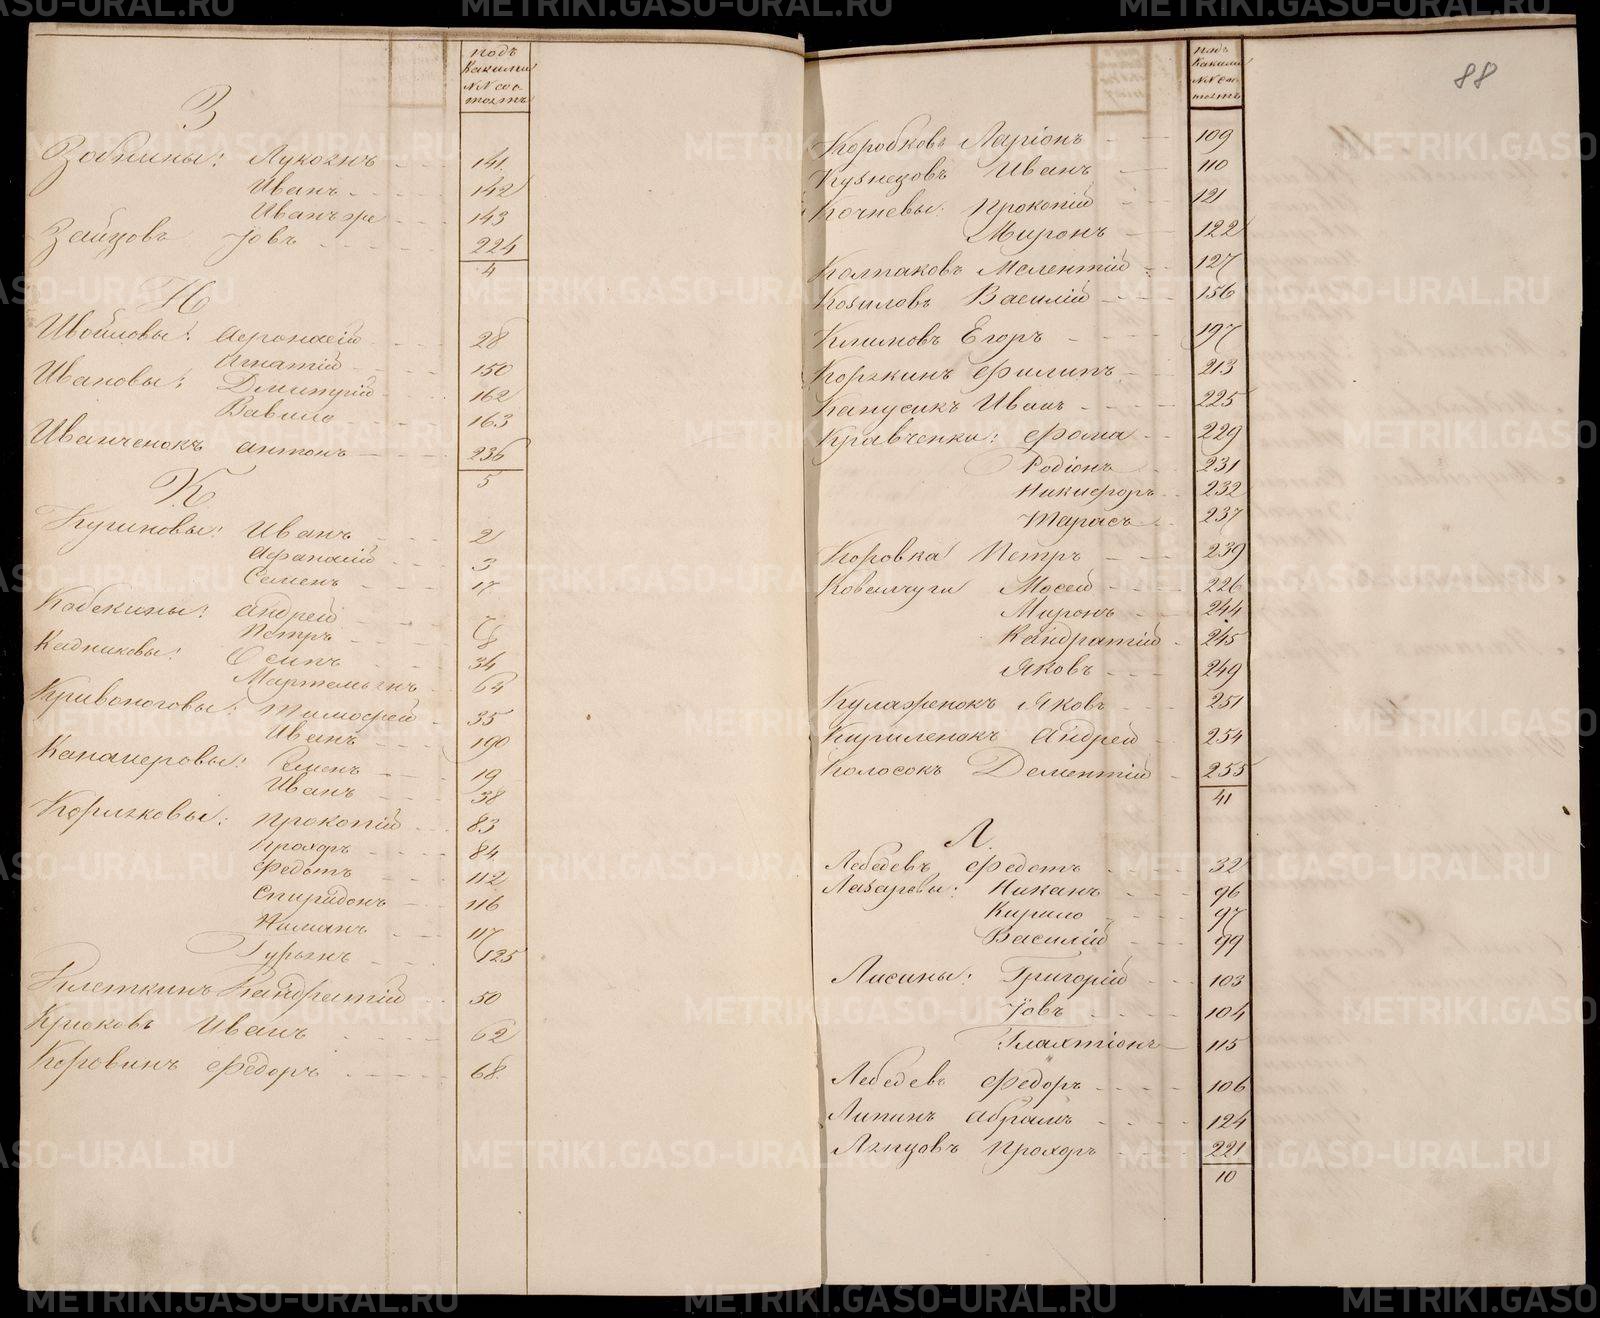 подъ
Какими
№№ сос-
тоятъ
З
Зобнины: Лукоянъ 141.
Иванъ 142
Иванъ же 143
Зайцовъ Іовъ 224
4
И
Ивойловы: Афонасій 28
Игнатій 150
Ивановы: Дмитрій 162
Вавило 163
Иванченокъ Антонъ 236
5
К
Кугиковы: Иванъ 2
Афанасій 3
Семенъ 17
Кобекины: Андрей 7
Петръ 8
Кадниковы: Осипъ 34
Мартемьянъ 64
Кривоноговы: Тимофей 35
Иванъ 190
Канаперовы: Семенъ 19
Иванъ 38
Коряковы: Прокопій 83
Прохоръ 84
Федотъ 112
Спиридонъ 116
Иманъ 117
Гурьянъ 125
Клеткинъ Кандратій 50
Крюковъ Иванъ 62
Коровинъ Федоръ 68.
подъ
Какими
№№ сос-
тоятъ
88
Коробковъ Ларіонъ 109
Кузнецовъ Иванъ 110
Кочневы: Прокопій 121
Миронъ 122
Колпаковъ Мелентій 127
Козиловъ Василій 156
Климовъ Егоръ 197
Корякинъ Филипъ 213
Капусикъ Иванъ 225
Кравченки: Фома 229
Родіонъ 231
Никифоръ 232
Тарасъ 237
Коровка Петръ 239
Ковенчуги Мосей 226
Миронъ 244
Кандратій 245
Яковъ 249
Кулаженокъ Яковъ 251
Кириленокъ Андрей 254
Колосокъ Дементій 255
41
Л.
Лебедевъ Федотъ 32
Лазаревы: Никанъ 96
Кирило 97
Василій 99
Ласины: Григорій 103
Іовъ 104
Галахтіонъ 115
Лебедевъ Федоръ 106
Липинъ Абрамъ 124
Ляпцовъ Прохоръ 221
10